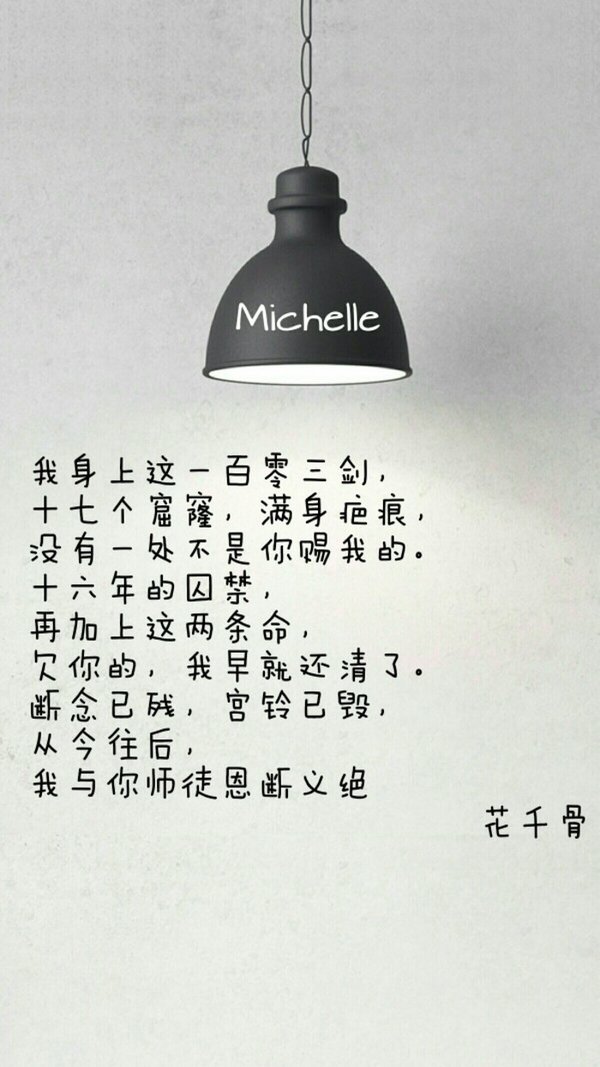 Michelle
我身上这一百零三剑，
十七个窟窿，满身疤痕，
没有一处不是你赐我的。
十六年的囚禁，
再加上这两条命，
欠你的，我早就还清了。
断念已残，宫铃已毁，
从今往后，
我与你师徒恩断义绝
花千骨